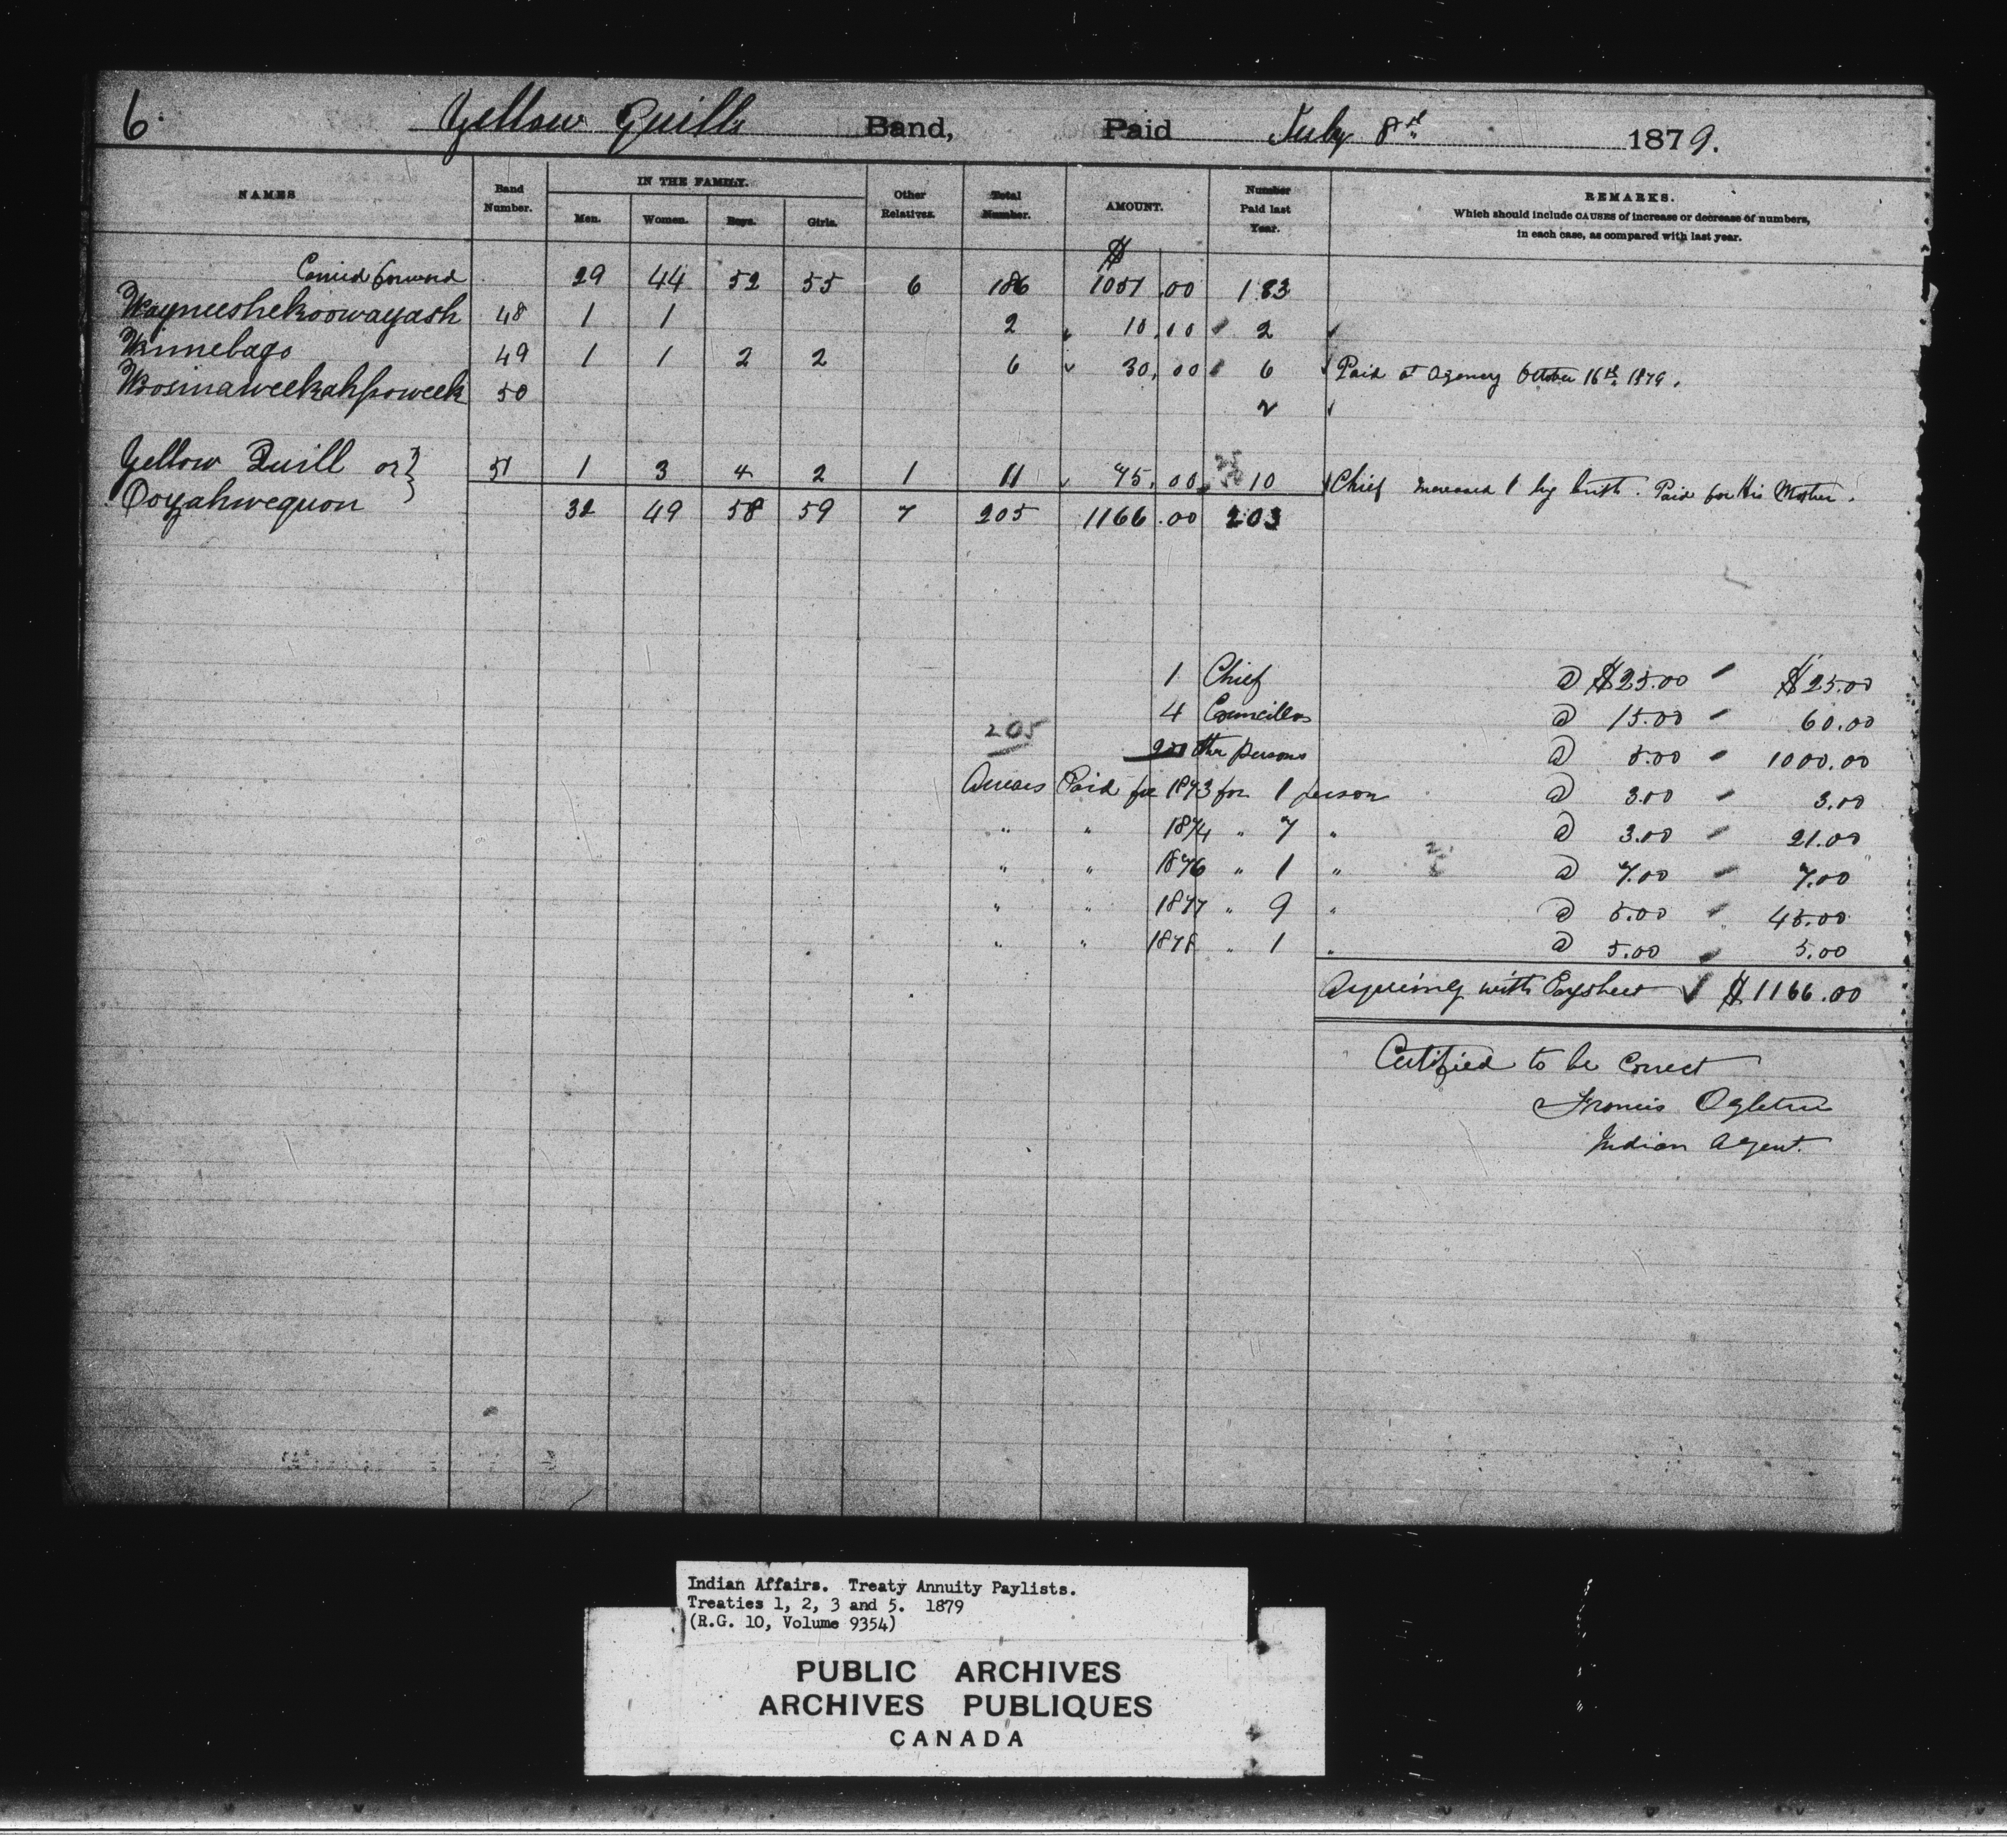 6. Yellow Quills Band, Paid July 8th 1879.
NAMES Band Number. IN THE FAMILY. Men. Women. Boys. Girls. Other Relatives. Total Number. AMOUNT. Number Paid last Year. REMARKS.
Which should include CAUSES of increase or decrease of numbers, in each case, as compared with last year.
$
Carried forward 29 44 52 55 6 186 1051.00 183
Wayneeshekoowayash 48 1 1 2 10.00 2
Winnebago 49 1 1 2 2 6 30.00 6 Paid at Agency October 16th 1879.
Wosinaweekahpoweek 50 2
Yellow Quill or } 51 1 3 4 2 1 11 75.00 10 Chief Increased 1 by birth. Paid for His Mother.
Ooyahwequon
32 49 58 59 7 205 1166.00 203
1 Chief @ $25.00 $25.00
4 Councillors @ 15.00 60.00
205 200 other persons @ 5.00 1000.00
Arrears Paid for 1873 for 1 person @ 3.00 3.00
" " 1874 " 7 " @ 3.00 21.00
" " 1876 " 1 " @ 7.00 7.00
" " 1877 " 9 " @ 5.00 45.00
" " 1878 " 1 " @ 5.00 5.00
Agreeing with Paysheet ✓ $1166.00
Certified to be Correct
Francis Ogletree
Indian Agent.
Indian Affairs. Treaty Annuity Paylists.
Treaties 1, 2, 3 and 5. 1879
(R.G. 10, Volume 9354)
PUBLIC ARCHIVES
ARCHIVES PUBLIQUES
CANADA